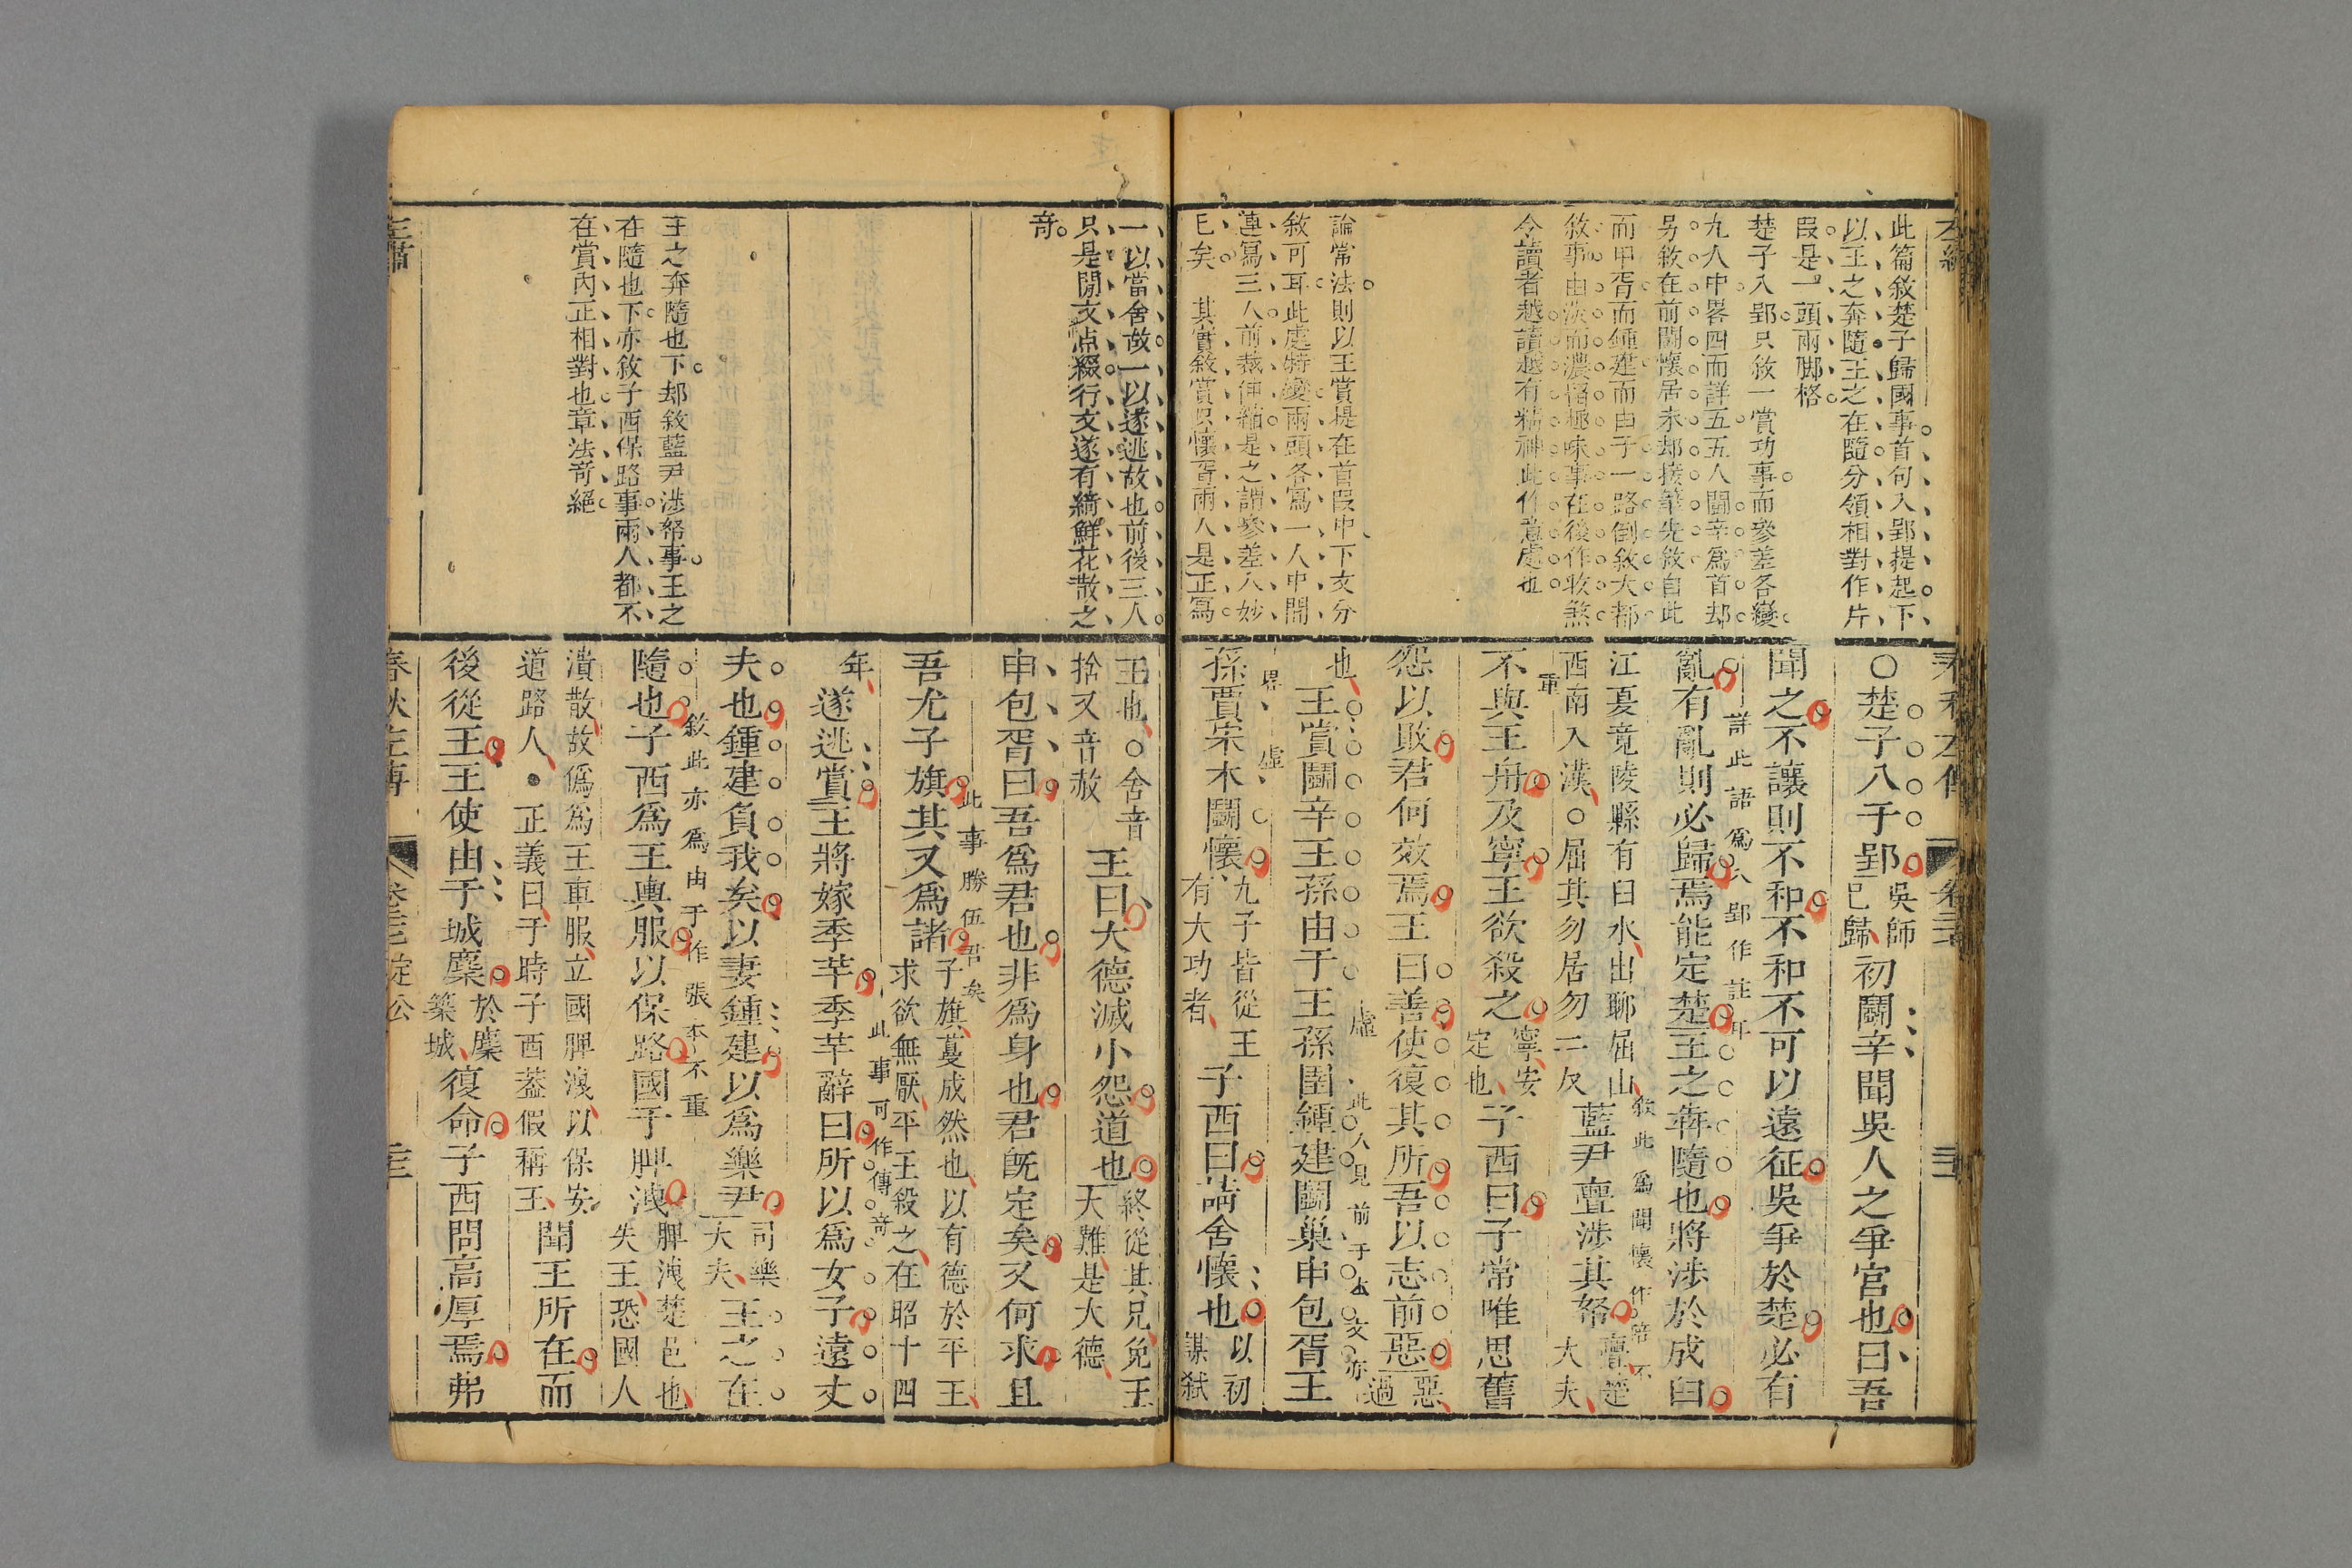 左繡
此篇敘楚子歸國事首句入郢提起下
以王之奔隨王之在隨分領相對作片
叚是一頭兩脚格
楚子入郢只敘一賞功事而參差各變
九人中畧四而詳五五人鬬辛爲首却
另敘在前鬬懷居末却接筆先敘自此
而申胥而鍾建而由于一路倒敘大都
敘事由淡而濃極味事在後作收煞
令讀者越讀越有精神此作意處也
論常法則以王賞提在首叚中下文分
敘可耳此處特變兩頭各寫一人中間
連寫三人前裁伸縮是之謂參差入妙
巳矣 其實敘賞只懷胥兩人是正寫
春秋左傳 卷二十七
○楚子入于郢吳師巳歸初鬬辛聞吳人之爭宮也曰吾
聞之不讓則不和不和不可以遠征吳爭於楚必有
詳此語爲入郢作註耳
亂有亂則必歸焉能定楚王之奔隨也將涉於成臼
江夏竟陵縣有臼水出聊屈山西南入漢○屈其勿居勿二反藍尹亹涉其帑亹楚大夫
敘此爲鬬懷作陪不重
不與王舟及寧王欲殺之寧安定也子西曰子常唯思舊
怨以敗君何效焉王曰善使復其所吾以志前惡惡過
也王賞鬬辛王孫由于王孫圉鍾建鬬巢申包胥王
孫賈宋木鬬懷九子皆從王有大功者子西曰請舍懷也以初謀弑
一以當舍故一以遂逃故也前後三人
只是閒文点綴行文遂有綺鮮花散之
奇
王之奔隨也下却敘藍尹涉帑事王之
在隨也下亦敘子西保路事兩人都不
在賞內正相對也章法奇絕
王也○舍音捨又音赦王曰大德滅小怨道也終從其兄免王大難是大德
申包胥曰吾爲君也非爲身也君旣定矣又何求且
吾尤子旗其又爲諸子旗蔓成然也以有德於平王求欲無厭平王殺之在昭十四
此事勝伍君矣
年遂逃賞王將嫁季芊季芊辭曰所以爲女子遠丈
此事可作傳奇
夫也鍾建負我矣以妻鍾建以爲樂尹司樂大夫王之在
敘此亦爲由于作張本不重
隨也子西爲王輿服以保路國于脾洩脾洩楚邑也失王恐國人
潰散故僞爲王車服立國脾洩以保安道路人●正義曰于時子西葢假稱王聞王所在而
後從王王使由于城麇於麇築城復命子西問高厚焉弗
左繡 春秋左傳 定公